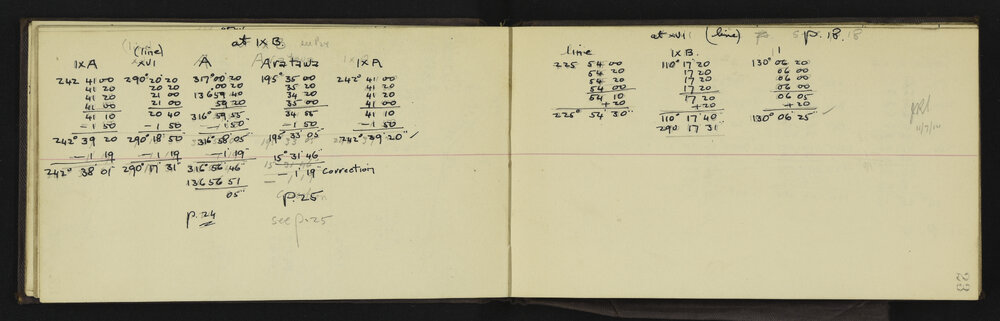 at IX B.
(line)
IX A XXVI A Aratawa IX A
242 41 00 290° 20' 20 317° 00' 20 195° 35' 00 242° 41' 00
41 20 20 20 00 20 35 20 41 20
41 20 21 00 136 59 40 34 20 41 20
41 00 21 00 58 20 35 00 41 00
41 10 20 40 316° 59' 55 34 55 41 10
— 1 50 — 1 50 — 1 50 — 1 50 — 1 50
242° 39 20 290° 18' 50 316° 58' 05" 195° 33' 05" 242° 39' 20"
— 1 19 — 1 19 — 1 19 15° 31' 46
242° 38' 01" 290° 17' 31" 316° 56' 46" — 1' 19" correction
136 56 51
05" p. 25
p. 24 see p. 25
at XVII (line) p. 18. 18
line IX B. 11
225 54 00 110° 17' 20 130° 06 20
54 20 17 20 06 00
54 20 17 20 06 00
54 00 17 20 06 00
54 10 17 20 06 05
+20 +20 +20
225° 54' 30" 110° 17' 40" 130° 06' 25"
290 17 31"
23